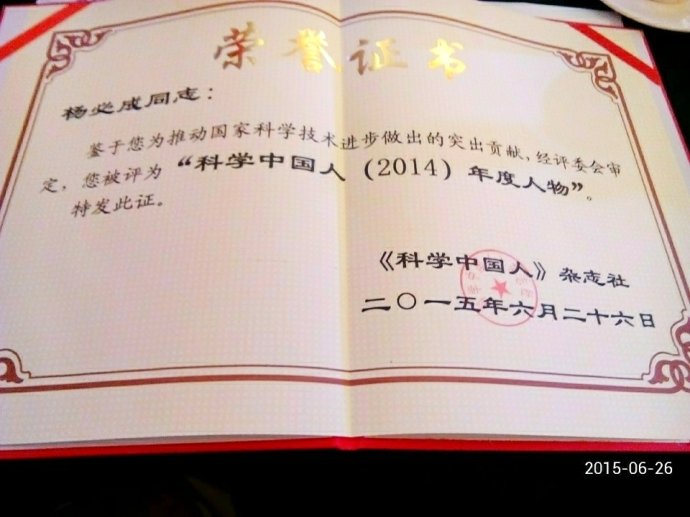 荣誉证书
杨必成同志：
鉴于您为推动国家科学技术进步做出的突出贡献，经评委会审
定，您被评为“科学中国人（2014）年度人物”。
特发此证。
《科学中国人》杂志社
二〇一五年六月二十六日
2015-06-26